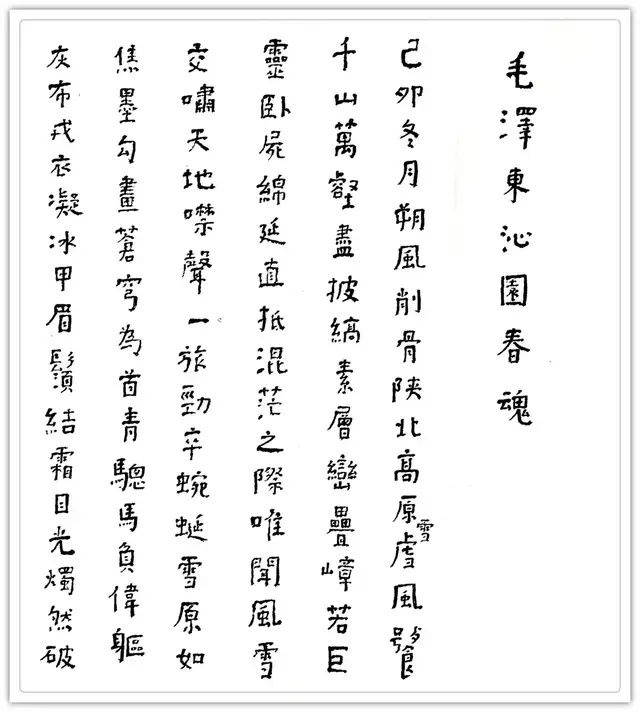 毛澤東沁園春魂
己卯冬月朔風削骨陕北高原雪虐風饕
千山萬壑盡披縞素層巒疊嶂若巨
靈卧屍綿延直抵混茫之際唯聞風雪
交嘯天地噤聲一旅勁卒蜿蜒雪原如
焦墨勾畫蒼穹為首青驄馬負偉軀
灰布戎衣凝冰甲眉鬚結霜目光燭然破